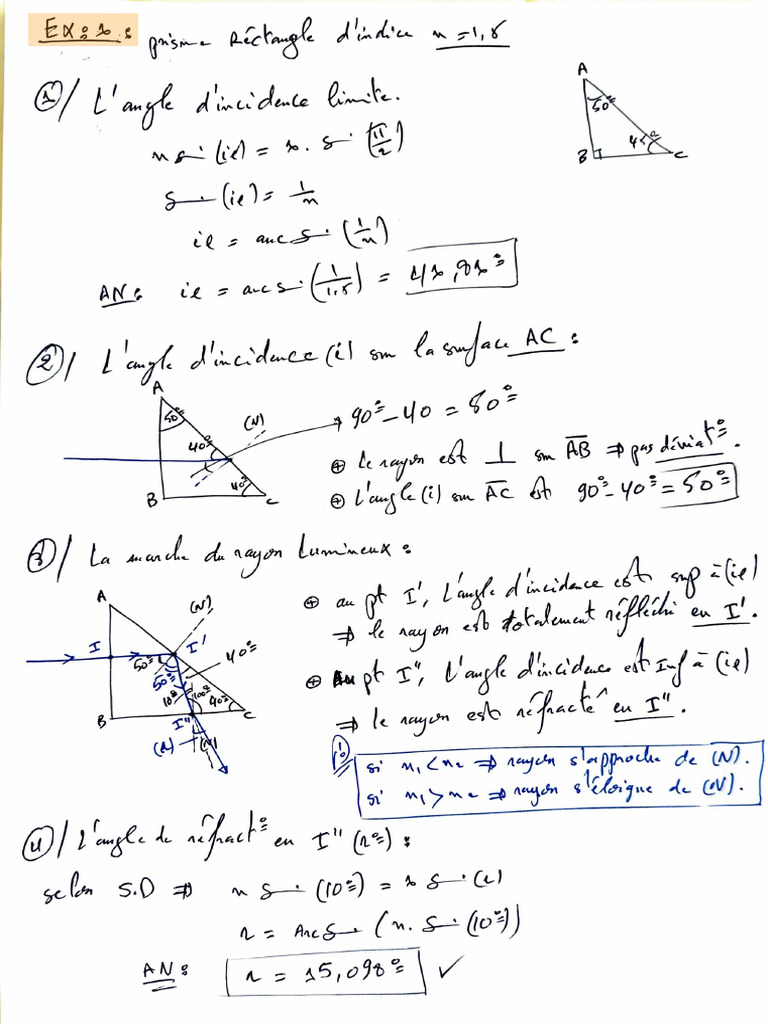 Ex: 1:
prisme Réctangle d'indice n = 1,5
1)/ L'angle d'incidence limite.
n sin(iℓ) = 1. sin(π/2)
sin(iℓ) = 1/n
iℓ = arcsin(1/n)
AN: iℓ = arcsin(1/1,5) = 41,81°
A
50°
45°
B
I
C
2)/ L'angle d'incidence (i) sur la surface AC :
A
50°
(N)
40°
B
40°
C
→ 90° - 40 = 50°
⊕ Le rayon est ⊥ sur AB ⇒ pas déviat°.
⊕ L'angle (i) sur AC est 90° - 40° = 50°
3)/ La marche du rayon Lumineux :
A
(N)
I
I'
50°
50°
40°
10°
100°
40°
B
I''
C
(r)
(N)
⊕ au pt I', L'angle d'incidence est sup à (iℓ)
⇒ le rayon est totalement réfléchi en I'.
⊕ Au pt I'', L'angle d'incidence est Inf à (iℓ)
⇒ le rayon est réfracté en I''.
si n1 < n2 ⇒ rayon s'approche de (N).
si n1 > n2 ⇒ rayon s'éloigne de (N).
4)/ L'angle de réfract° en I'' (r°) :
selon S.D ⇒ n sin(10°) = 1 sin(r)
r = Arcsin(n. sin(10°))
AN: r = 15,098° ✓